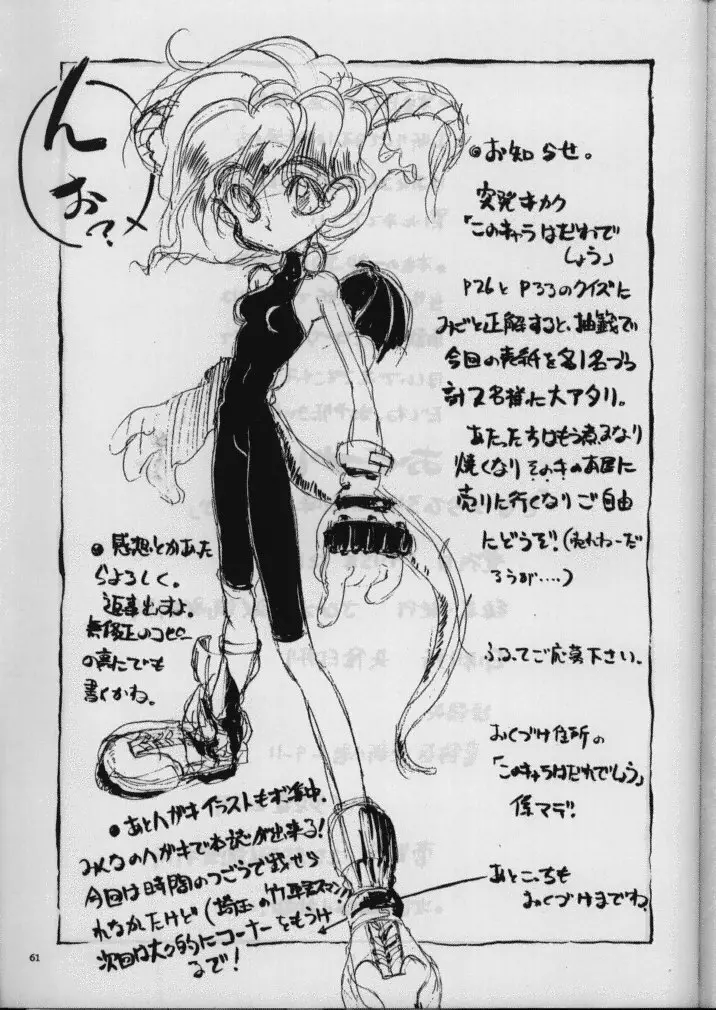 んお?
●お知らせ。
突発キカク
「このキャラはだれで
しょう」
P26とP33のクイズに
みごと正解すると、抽籤で
今回の表紙を各1名づつ
計2名様に大アタリ。
あたった方はもう煮るなり
焼くなりそのスキのお店に
売りに行くなりご自由
にどうぞ!(売れねーだ
ろうが‥‥)
ふるってご応募下さい。
おくづけ住所の
「このキャラはだれでしょう」
係マデ!
あとこっちも
おくづけまでね
●感想とかあた
らよろしく。
返事出すよ。
無修正のコピー
の裏にでも
書くかね。
●あとハガキイラストもボ集中。
みんなのハガキで本誌が出来る!
今回は時間のつごうで載せら
れなかたけど(埼玉の竹 スマン!)
次回は大々的にコーナーをもうけ
るで!
61